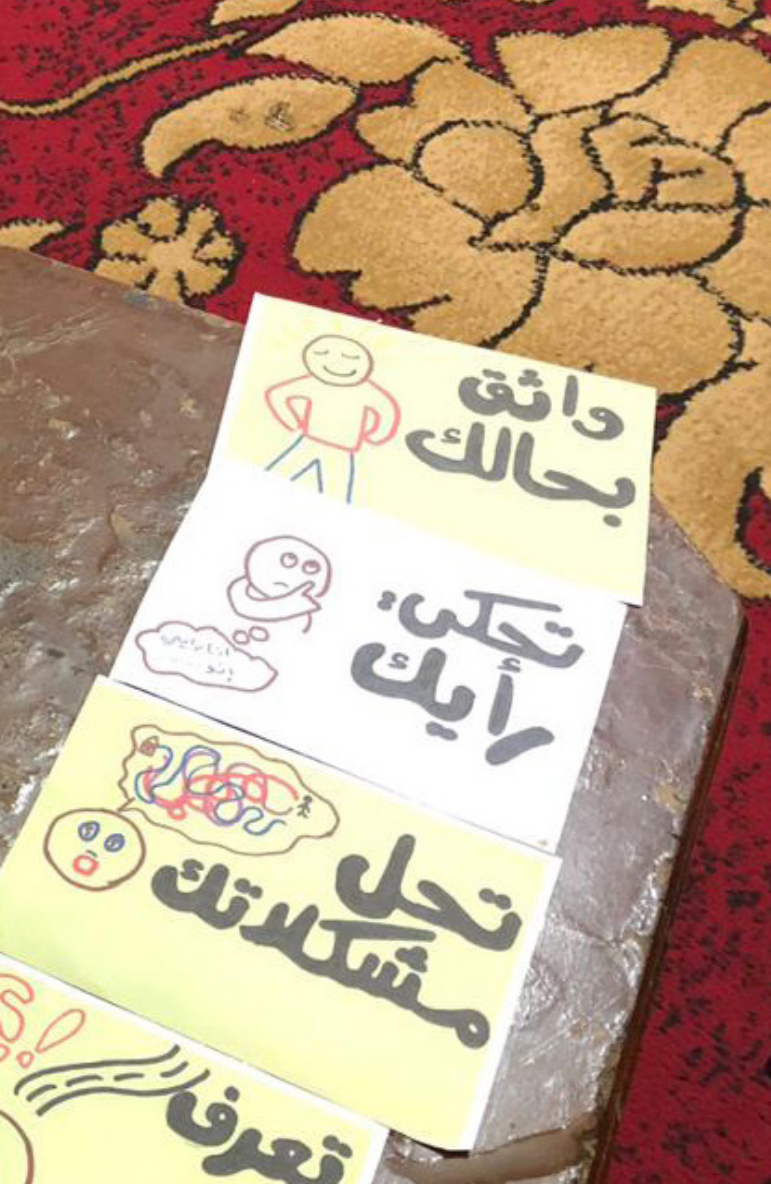 واثق
بحالك
تحكي
رأيك
انا رايي
تحل
مشكلاتك
تعرف